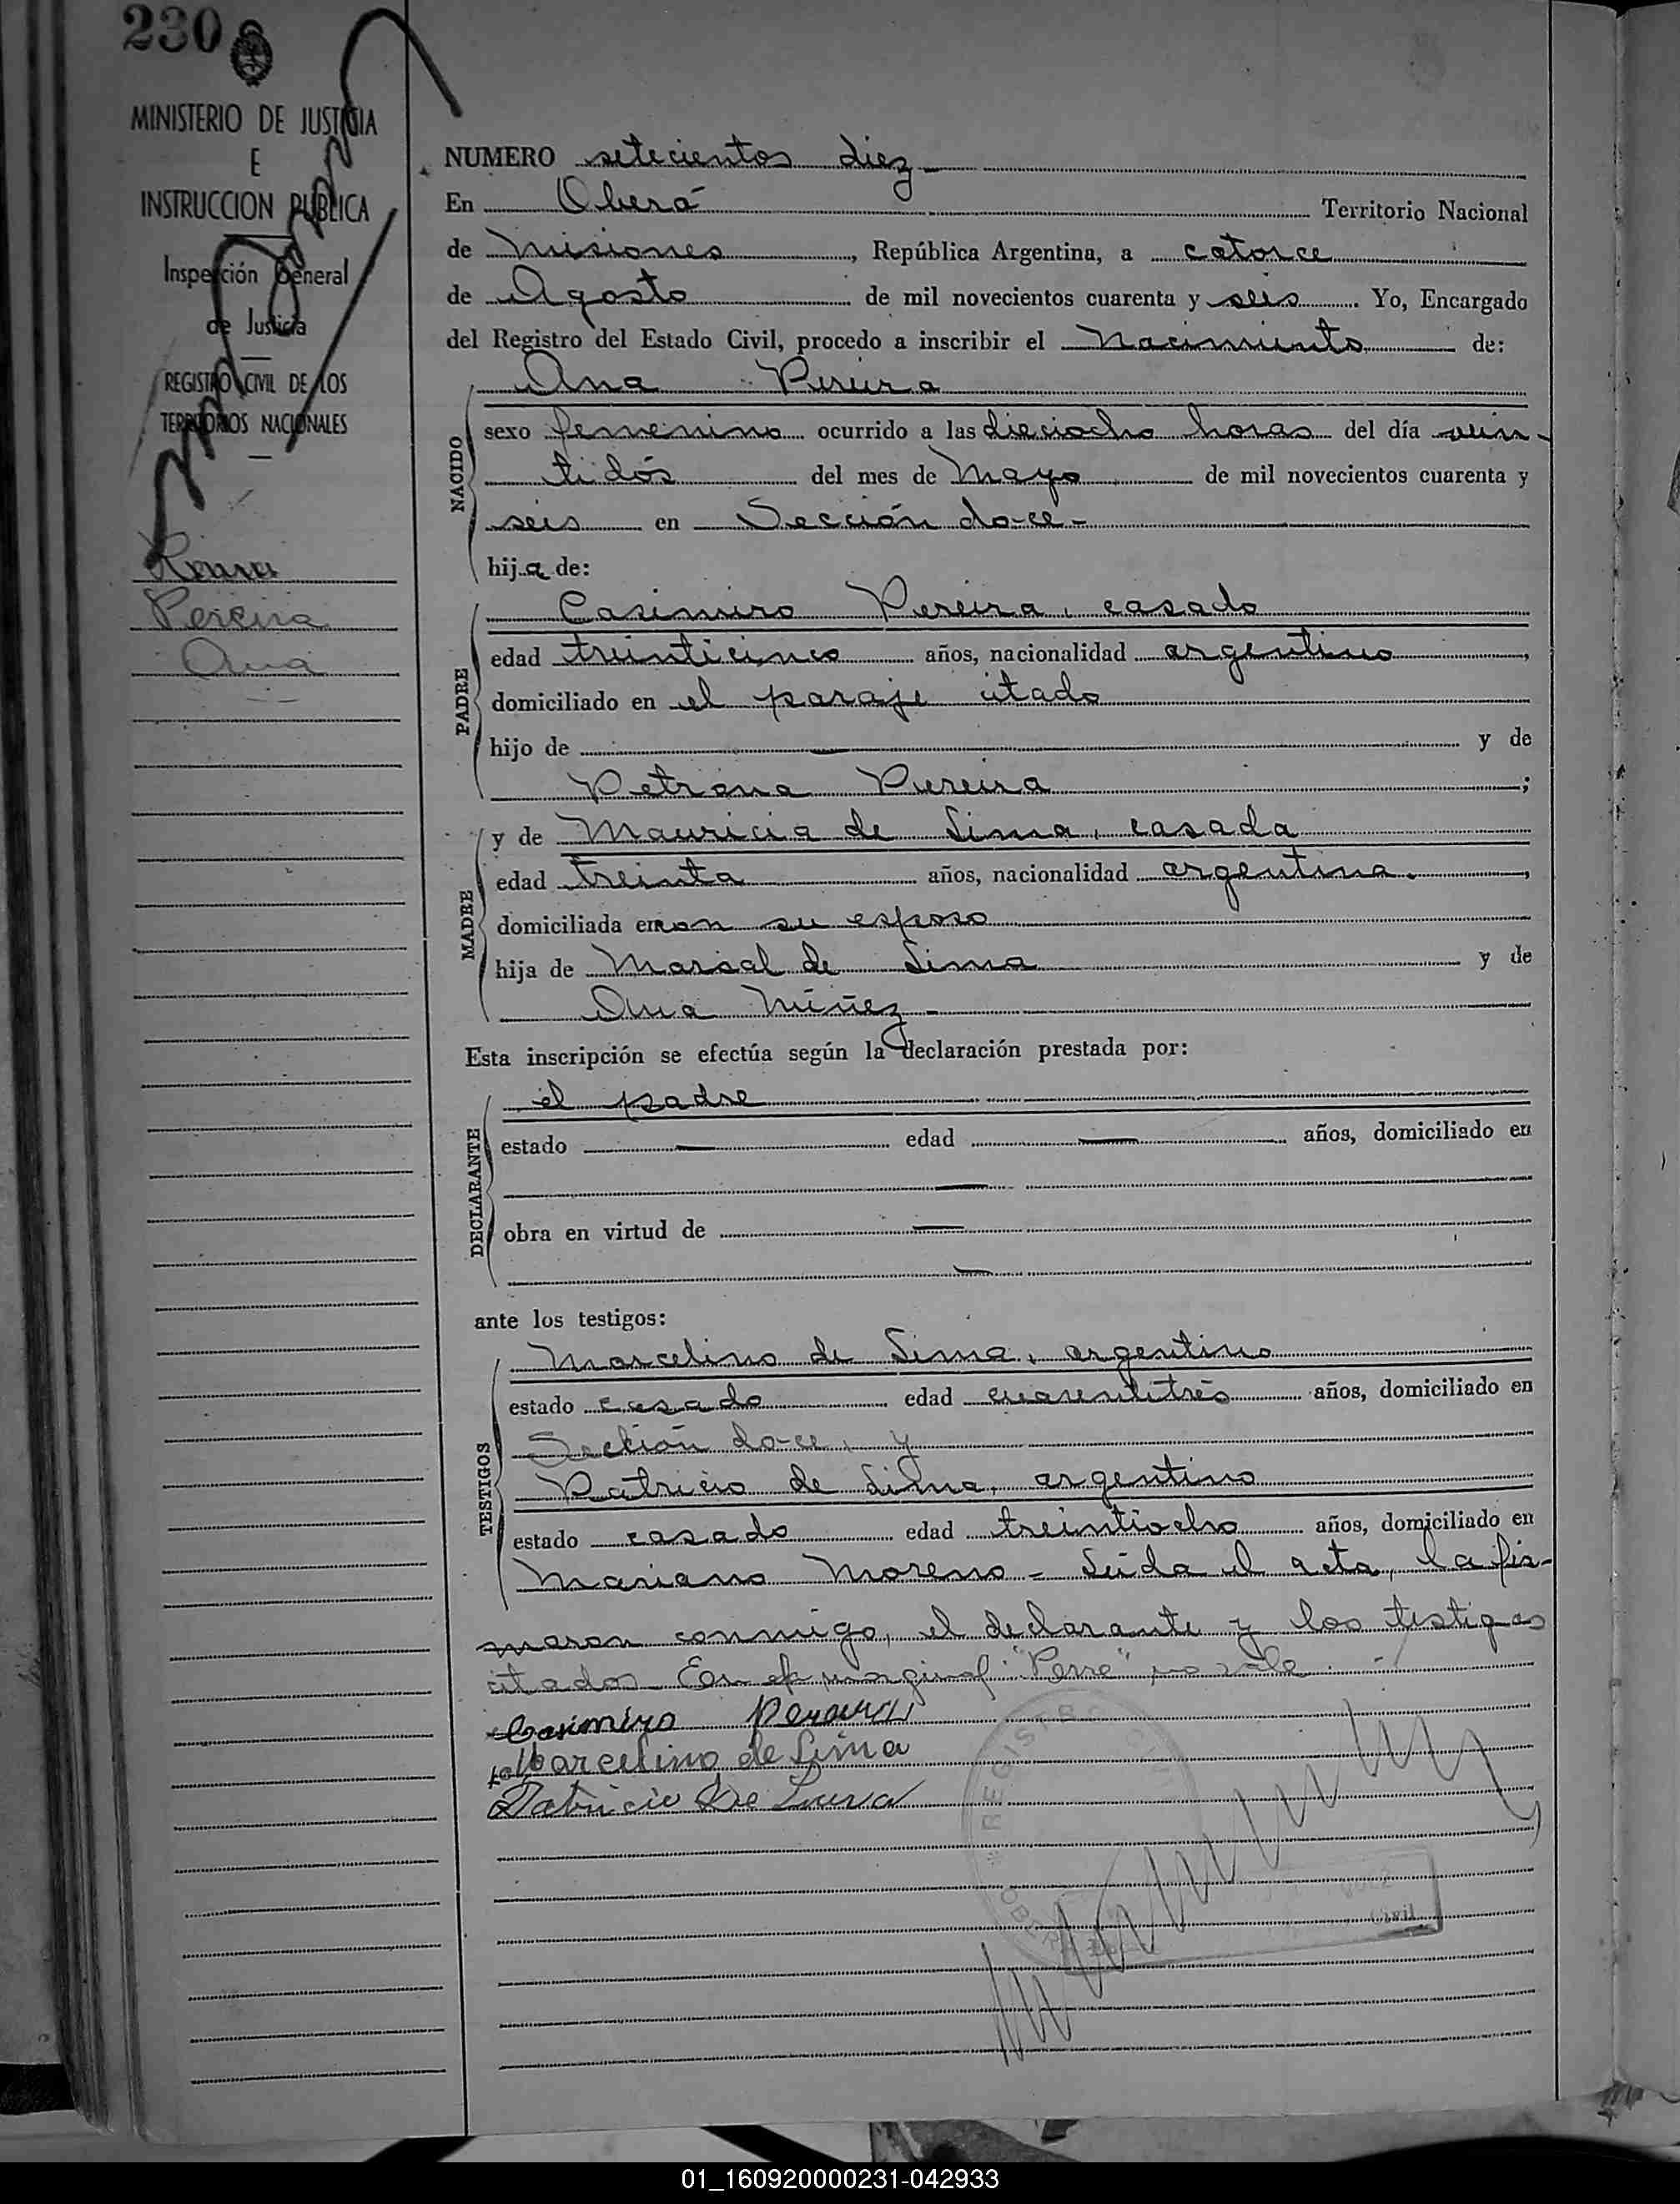 230
MINISTERIO DE JUSTICIA
E
INSTRUCCION PUBLICA
Inspección General
de Justicia
REGISTRO CIVIL DE LOS
TERRITORIOS NACIONALES
Pereira
Ana
NUMERO setecientos diez
En Oberá Territorio Nacional
de Misiones, República Argentina, a catorce
de Agosto de mil novecientos cuarenta y seis. Yo, Encargado
del Registro del Estado Civil, procedo a inscribir el Nacimiento de:
Ana Pereira
NACIDO
sexo femenino ocurrido a las dieciocho horas del día vein-
tidós del mes de Mayo de mil novecientos cuarenta y
seis en Sección doce-
hija de:
PADRE
Casimiro Pereira, casado
edad treinticinco años, nacionalidad argentino,
domiciliado en el paraje citado
hijo de — y de
Petrona Pereira;
MADRE
y de Mauricia de Lima, casada
edad treinta años, nacionalidad argentina.,
domiciliada en con su esposo
hija de Marsal de Lima y de
Ana Núñez-
Esta inscripción se efectúa según la declaración prestada por:
DECLARANTE
el padre
estado — edad — años, domiciliado en
—
obra en virtud de —
—
ante los testigos:
TESTIGOS
Marcelino de Lima, argentino
estado casado edad cuarentitrés años, domiciliado en
Sección doce, y
Patricio de Lima, argentino
estado casado edad treintiocho años, domiciliado en
Mariano Moreno - Leída el acta, la fir-
maron conmigo, el declarante y los testigos
citados. En el marginal: "Perre" no vale.
Casimiro Pereira
Marcelino de Lima
Patricio De Lima
REGISTRO CIVIL
OBERA
Civil
01_160920000231-042933